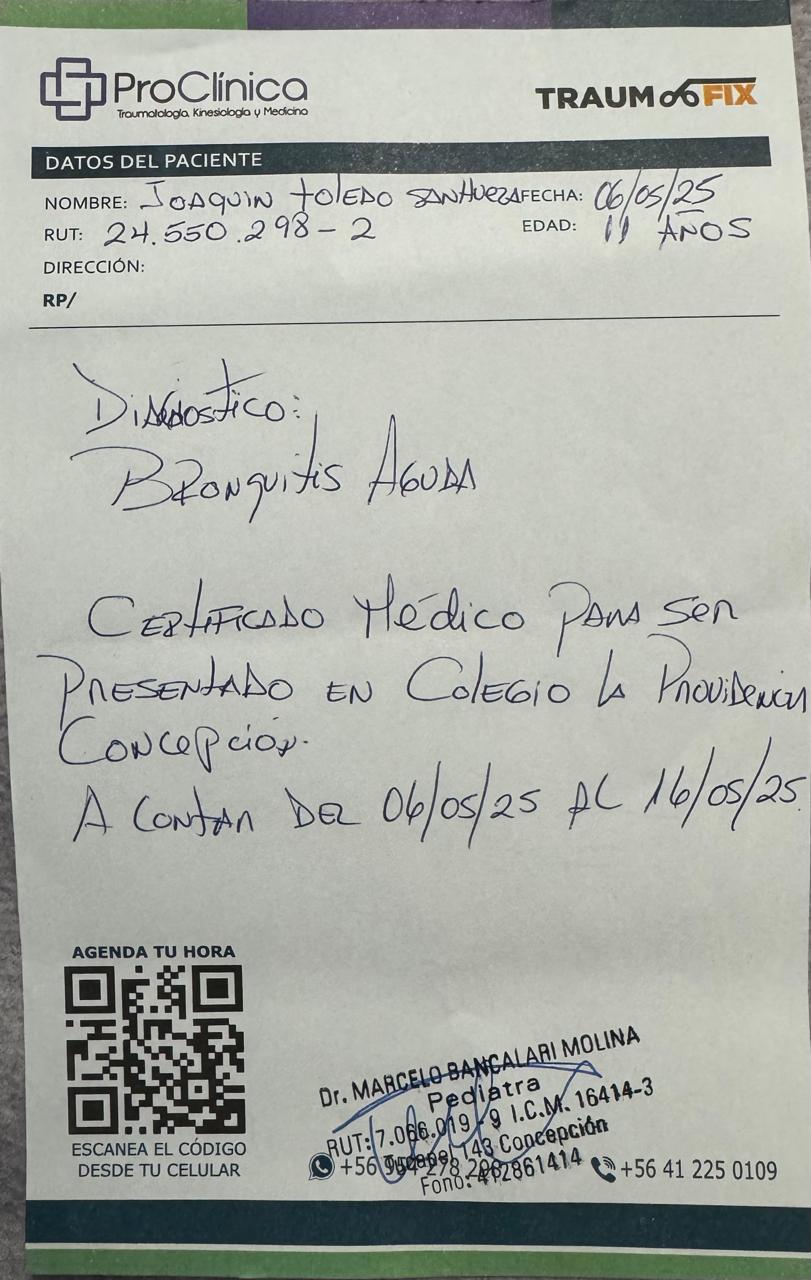 ProClínica
Traumatología, Kinesiología y Medicina
TRAUMAFIX
DATOS DEL PACIENTE
NOMBRE: JOAQUIN TOLEDO SANHUEZA FECHA: 06/05/25
RUT: 24.550.298-2 EDAD: 11 AÑOS
DIRECCIÓN:
RP/
DIAGNOSTICO:
BRONQUITIS AGUDA
CERTIFICADO MÉDICO PARA SER
PRESENTADO EN COLEGIO LA PROVIDENCIA
CONCEPCIÓN.
A CONTAR DEL 06/05/25 AL 16/05/25.
AGENDA TU HORA
ESCANEA EL CÓDIGO
DESDE TU CELULAR
Dr. MARCELO BANCALARI MOLINA
Pediatra
RUT: 7.066.019-9 I.C.M. 16414-3
143 Concepción
Fono: 412861414
+56 41 225 0109